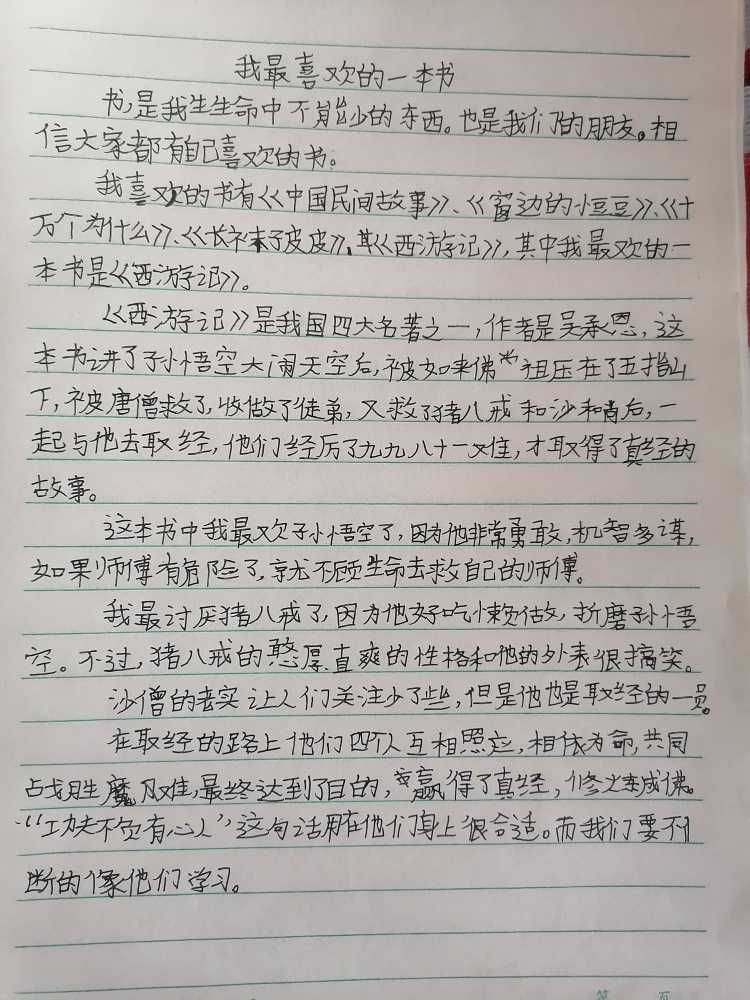 我最喜欢的一本书
书,是我生生命中不能少的东西。也是我们的朋友。相
信大家都有自己喜欢的书。
我喜欢的书有《《中国民间故事》》、《《窗边的小豆豆》》、《《十
万个为什么》》、《《长袜子皮皮》》、《《西游记》》,其中我最欢的一
本书是《《西游记》》。
《《西游记》》是我国四大名著之一,作者是吴承恩,这
本书讲了孙悟空大闹天空后,被如来佛祖压在了五指山
下,被唐僧救了,收做了徒弟,又救了猪八戒和沙和尚后,一
起与他去取经,他们经历了九九八十一难,才取得了真经的
故事。
这本书中我最欢孙悟空了,因为他非常勇敢,机智多谋,
如果师傅有危险了,就不顾生命去救自己的师傅。
我最讨厌猪八戒了,因为他好吃懒做,折磨孙悟
空。不过,猪八戒的憨厚直爽的性格和他的外表很搞笑。
沙僧的老实让人们关注少了些,但是他也是取经的一员。
在取经的路上他们四个人互相照应,相依为命,共同
战胜魔难,最终达到了目的,赢得了真经,修炼成佛。
“功夫不负有心人”这句话用在他们身上很合适。而我们要不
断的像他们学习。
第 页